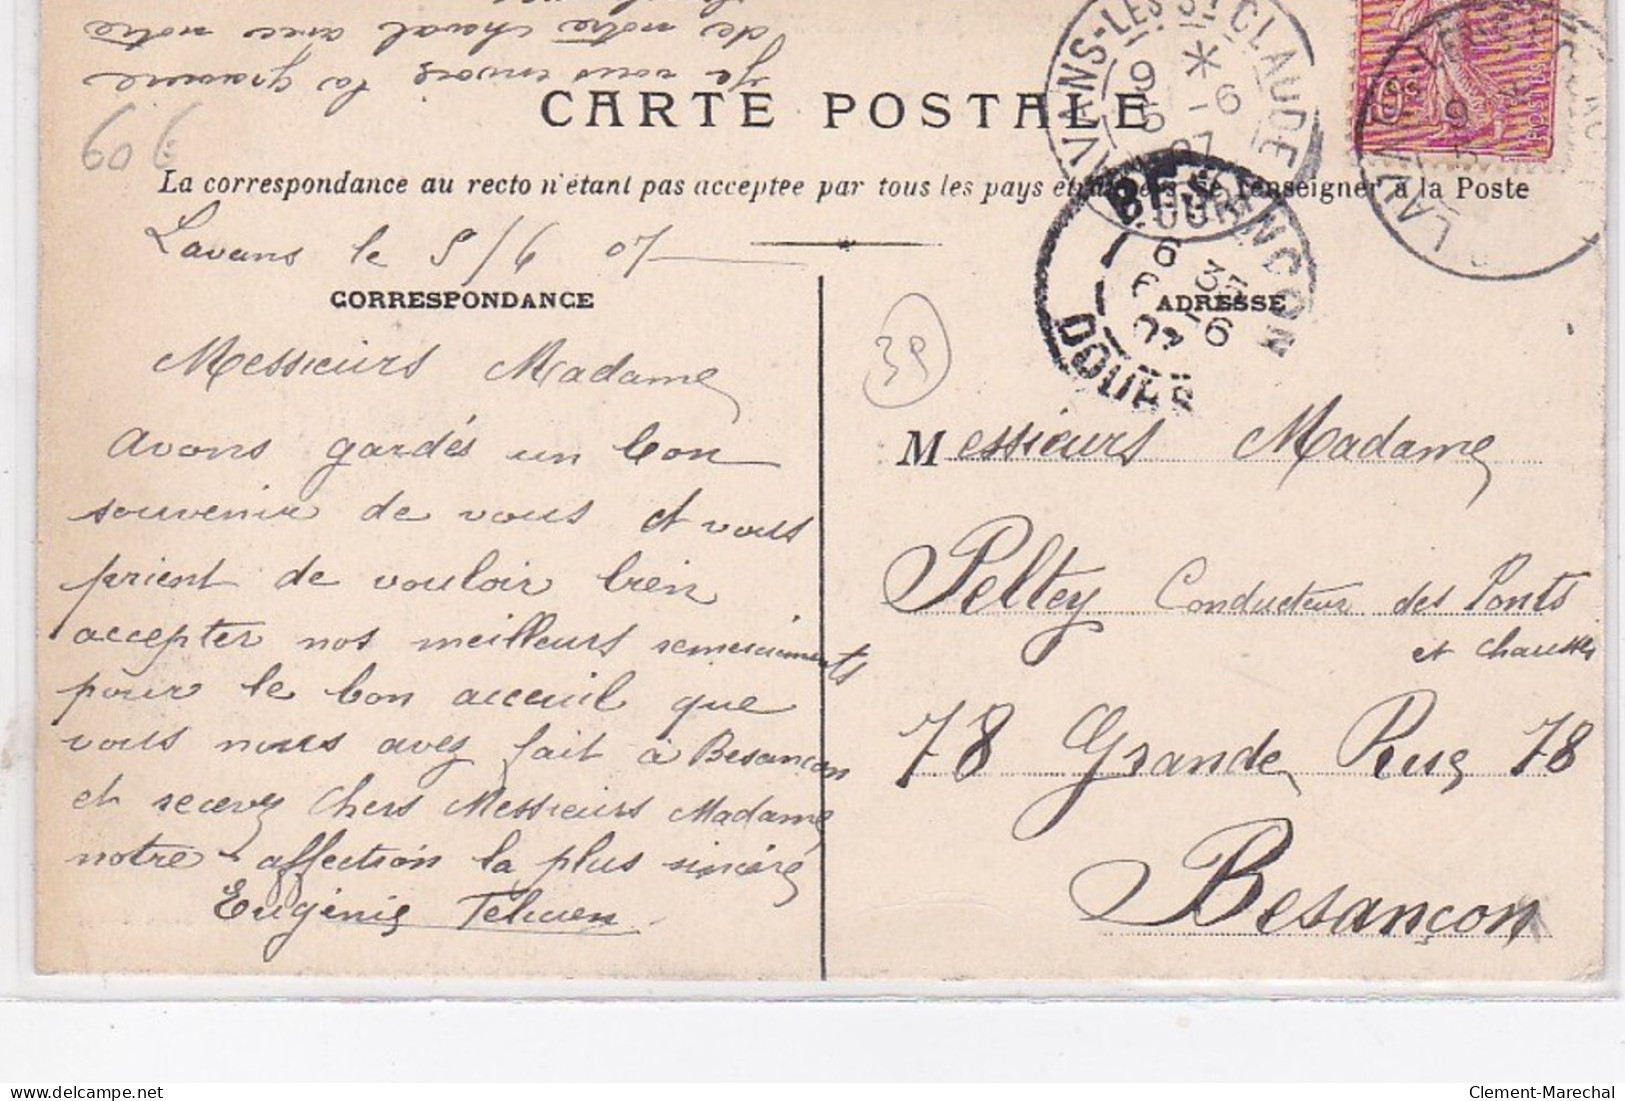 Je vous envoie la gravure
de notre cheval avec notre
CARTE POSTALE
La correspondance au recto n'étant pas acceptée par tous les pays étrangers se renseigner à la Poste
LAVANS-LES-ST-CLAUDE
BESANCON
DOUBS
Lavans le 5/6 07
CORRESPONDANCE
Messieurs Madame
avons gardés un bon
souvenir de vous et vous
prient de vouloir bien
accepter nos meilleurs remerciements
pour le bon acceuil que
vous nous avez fait à Besançon
et recevez Chers Messieurs Madame
notre affection la plus sincére
Eugénie
39
ADRESSE
Messieurs Madame
Peltey Conducteur des Ponts
et chaussées
78 Grande Rue 78
Besançon
Clement-Marechal